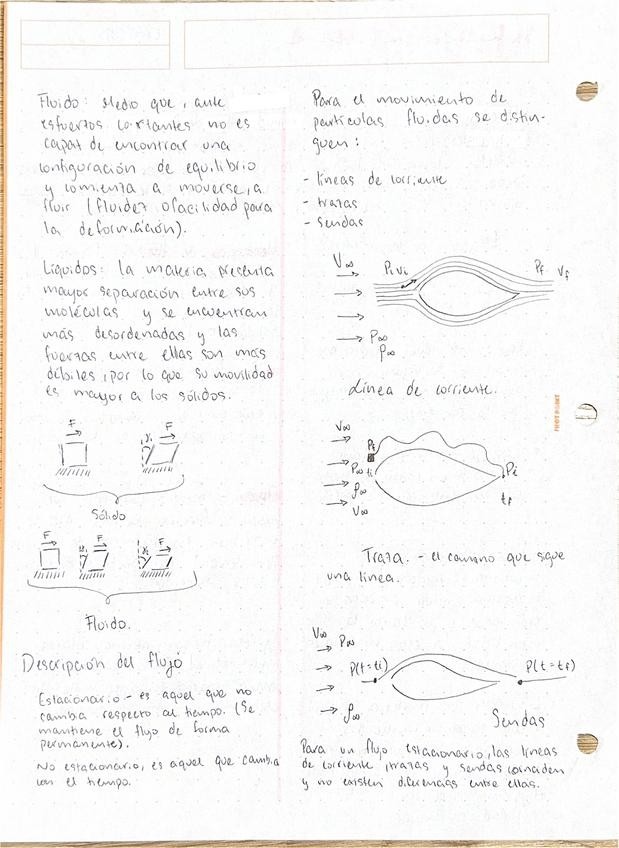 Fluido: Medio que, ante
esfuerzos cortantes no es
capaz de encontrar una
configuración de equilibrio
y comienza a moverse, a
fluir (fluidez o facilidad para
la deformación).
Líquidos: la materia presenta
mayor separación entre sus
moléculas y se encuentran
más desordenadas y las
fuerzas entre ellas son más
débiles, por lo que su movilidad
es mayor a los sólidos.
F
γ₁ F
Sólido
F
γ₁ F
γ₂ F
Fluido.
Descripción del flujo
Estacionario - es aquel que no
cambia respecto al tiempo. (Se
mantiene el flujo de forma
permanente).
No estacionario, es aquel que cambia
con el tiempo.
Para el movimiento de
partículas fluidas se distin-
guen:
- líneas de corriente
- trazas
- sendas
V∞
Pi Vi
Pf Vf
P∞
ρ∞
Línea de corriente.
V∞
Pf
P∞ ti
Pi
ρ∞
tf
V∞
Traza. - el camino que sigue
una línea.
V∞ P∞
P(t=ti)
P(t=tf)
ρ∞
Sendas
Para un flujo estacionario, las líneas
de corriente, trazas y sendas coinciden
y no existen diferencias entre ellas.